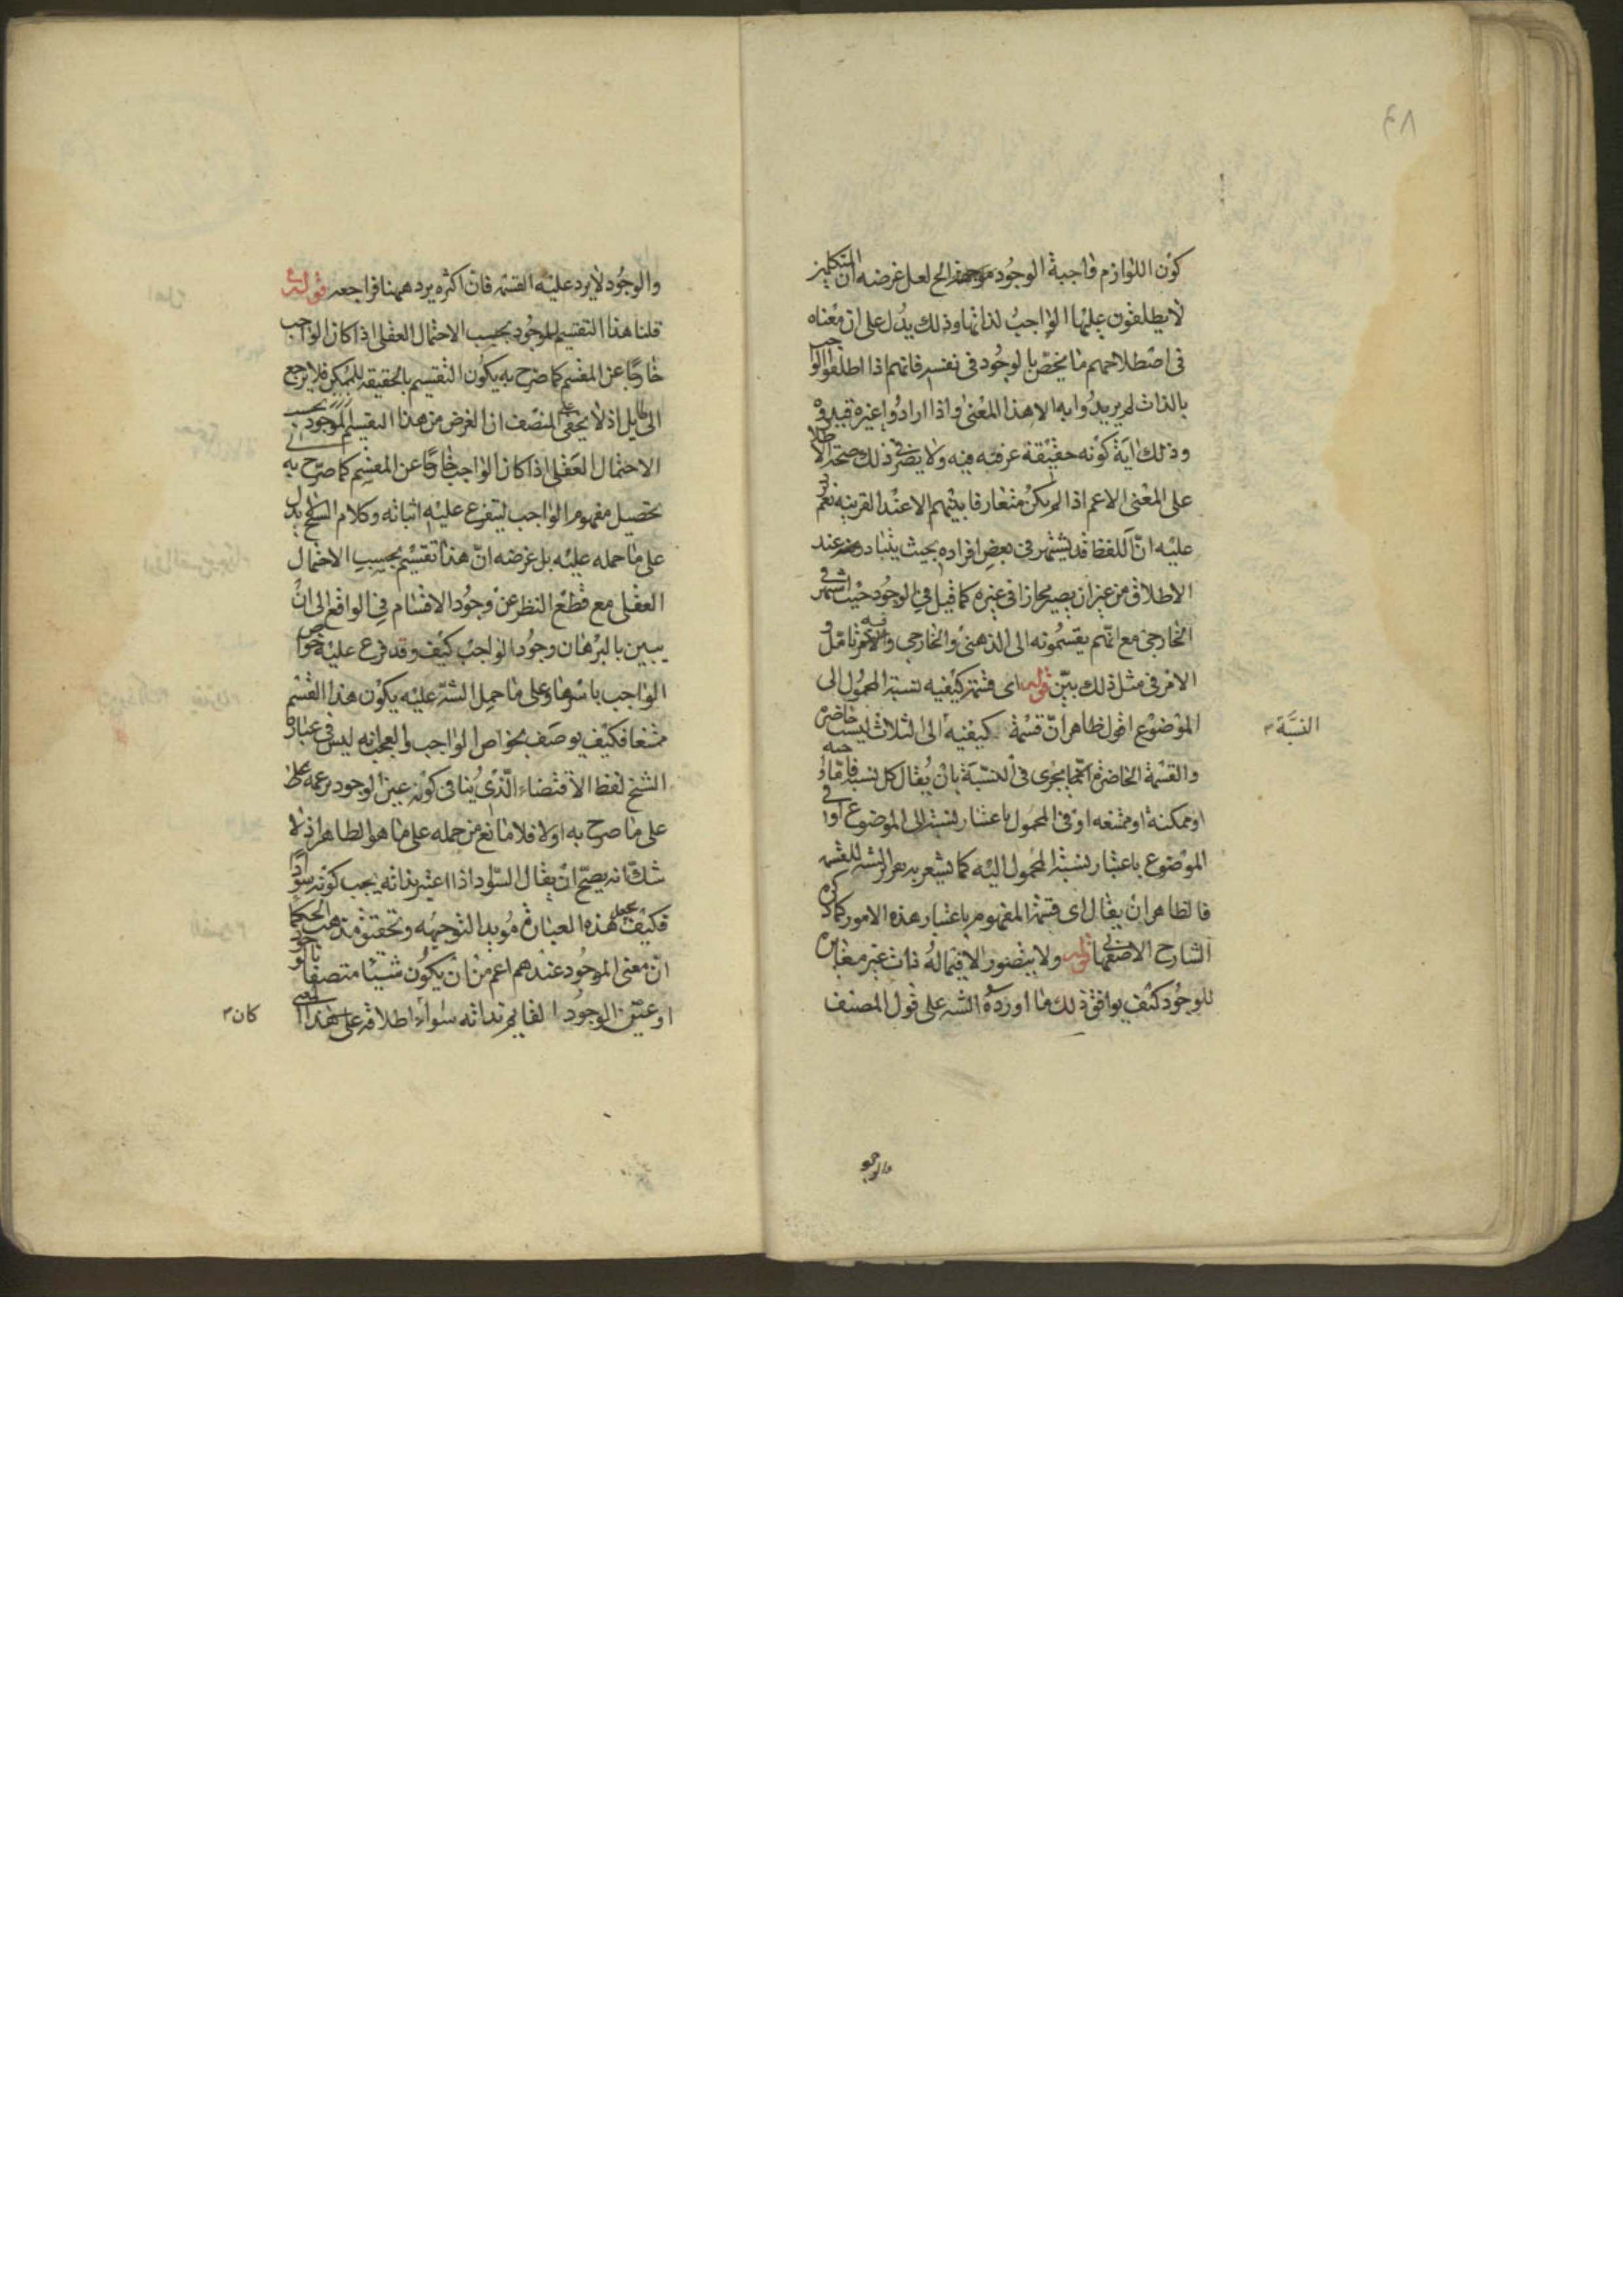 ٤٨
كون اللوازم واجبة الوجود الخ لعل غرضه ان المتكلمين
لا يطلقون عليها الواجب لذاتها وذلك يدل على ان معناه
في اصطلاحهم ما يختص بالوجود في نفسه فانهم اذا اطلقوا الواجب
بالذات لم يريدوا به الا هذا المعنى واذا ارادوا غيره قيدوه
وذلك آية كونه حقيقة عرفية فيه ولا يضر في ذلك صحة اطلاقه
على المعنى الاعم اذا لم يكن متعارفا بينهم الا عند القرينة نعم يرد
عليه ان اللفظ قد يشتهر في بعض افراده بحيث يتبادر عند
الاطلاق من غير ان يصير مجازا في غيره كما قيل في الوجود حيث اشتهر في
الخارجي مع انهم يقسمونه الى الذهني والخارجي تامل و
الامر في مثل ذلك بين قوله اى قسمة كيفيه نسبة المحمول الى
الموضوع اقول ظاهر ان قسمة كيفيه الى الثلاث ليست حاضرة
النسبة
والقسمة الحاضرة انما يجرى في النسبة بان يقال كل نسبة فاما واجبة
او ممكنة او ممتنعه او في المحمول باعتبار نسبته الى الموضوع او في
الموضوع باعتبار نسبة المحمول اليه كما يشعر به
فالظاهر ان يقال اى قسمة المفهوم باعتبار هذه الامور كما ذكره
الشارح الاصفهاني قوله ولا يتصور الا فيما له ذات غير مغايرة
للوجود كيف يوافق ذلك ما اورده الشه على قول المصنف
والوجو
والوجود لا يرد عليه القسمة فان اكثره يرد ههنا فراجعه قوله
قلنا هذا التقسيم للموجود بحسب الاحتمال العقلى اذا كان الواجب
خارجا عن المقسم كما صرح به يكون التقسيم بالحقيقه للممكن فلا يرجع
الى طايل اذ لا يخفى على المنصف ان الغرض من هذا التقسيم للموجود بحسب
الاحتمال العقلى اذا كان الواجب خارجا عن المقسم كما صرح به
تحصيل مفهوم الواجب ليتفرع عليه اثباته وكلام الشيخ يدل
على ما حمله عليه بل غرضه ان هذا تقسيم بحسب الاحتمال
العقلى مع قطع النظر عن وجود الاقسام في الواقع الى ان
يبين بالبرهان وجود الواجب كيف وقد فرع عليه خواص
الواجب باسرها وعلى ما حمل الشه عليه يكون هذا القسم
ممتنعا فكيف يوصف بخواص الواجب والعجب انه ليس في عبارة
الشيخ لفظ الاقتضاء الذي ينافى كونه عين الوجود
على ما صرح به اولا فلا مانع من حمله على ما هو الظاهر اذ لا
شك انه يصح ان يقال السواد اذا اعتبر بذاته يجب كونه سوادا
فكيف يجعل هذه العبارة مؤيد التوجيهه وتحقيق مذهب الحكما
ان معنى الموجود عندهم اعم من ان يكون شيئا متصفا بالوجود
او عين الوجود القايم بذاته سواء اطلاقه على هذا المعنى
كان